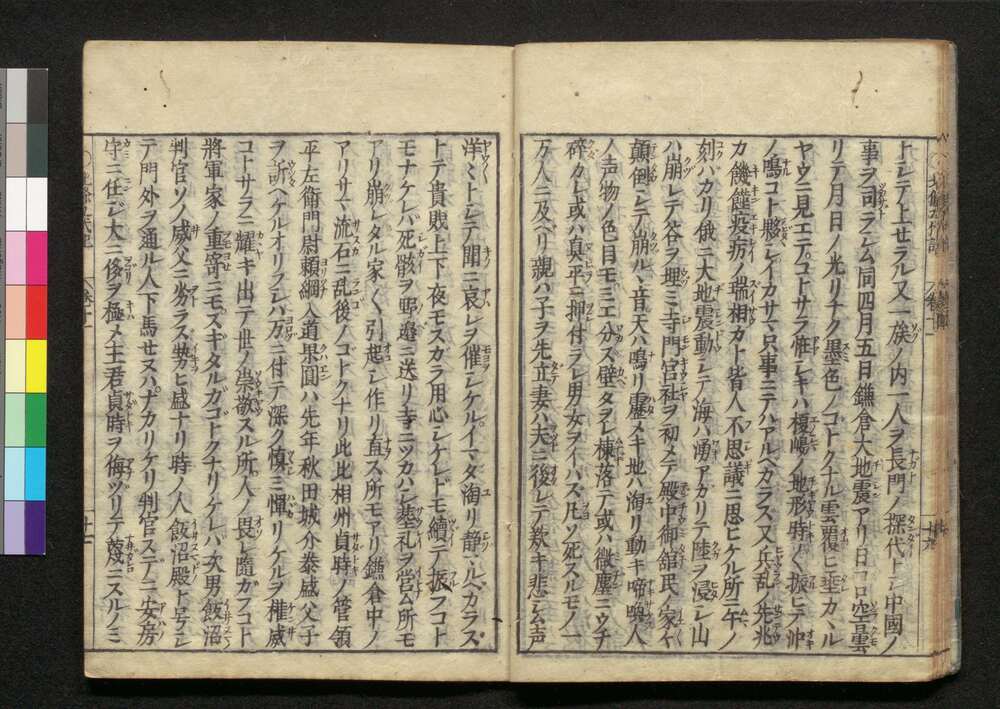 上シテ上セラル又一族ノ内一人ヲ長門ノ探代トシ中國ノ
事ヲ司ラシム同四月五日鎌倉大地震アリ日コロ空曇
リテ月日ノ光リナク墨色ノゴトクナル雲覆ヒ垂カヽル
ヤウニ見エテコトサラ怖シキハ榎嶋ノ地形時〱振ヒテ沖
ノ鳴コト夥シイカサマ只事ニテハアルヘカラス又兵乱ノ先兆
カ饑饉疫疠ノ瑞相カト皆人不思議ニ思ヒケル所ニ午ノ
刻バカリ俄ニ大地震動シテ海ハ湧アカリテ陸ヲ浸シ山
ハ崩レテ谷ヲ埋ミ寺門宮社ヲ初メテ殿中御舘民ノ家〻
顛倒シテ崩ルヽ音天ハ鳴リ靂メキ地ハ淘リ動キ啼喚人
ノ声物ノ色目モミエ分ズ壁タヲレ棟落テ或ハ微塵ニウチ
碎カレ或ハ真平ニ押付ラレ男女ヲイハス凡ソ死スルモノ一
万人ニ及ヘリ親ハ子ヲ先立妻ハ夫ニ後レテ歎キ悲シム声
洋〻トシテ聞ニ哀レヲ催シケルイマタ淘リ静マルベカラズ
トテ貴賤上下夜モスカラ用心シケレドモ續テ振フコト
モナケレバ死骸ヲ野邉ニ送リ寺ニツカハシ葬礼ヲ営ム所モ
アリ崩レタル家〱引起シ作リ直ス所モアリ鎌倉中ノ
アリサマ流石ニ乱後ノゴトクナリ此比相州貞時ノ管領
平左衛門尉頼綱入道果圓ハ先年秋田城介泰盛父子
ヲ訴ヘケルオリフシハ万ニ付テ深ク慎ミ憚リケルヲ権威
コトサラニ耀キ出テ世ノ崇敬スル所人ノ畏レ隨ガフコト
將軍家ノ重寄ニモスギタルガゴトクナリケレバ次男飯沼
判官ソノ威父ニ劣ラズ勢ヒ盛ナリ時ノ人飯沼殿ト号シ
テ門外ヲ通ル人下馬セヌハナカリケリ判官ステニ安房
守ニ任ジ大ニ侈ヲ極メ主君貞時ヲ侮ヅリテ蔑ニスルノミ